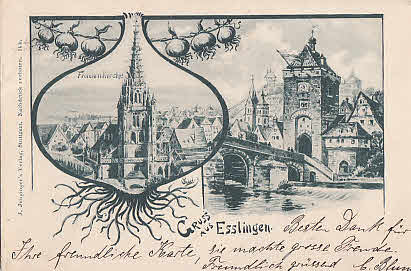 Frauenkirche
J. Junginger's Verlag, Stuttgart. Nachdruck verboten.
Gruss
aus
Esslingen.
Besten Dank für
Ihre freundliche Karte, sie machte grosse Freude.
Freundlich grüssend